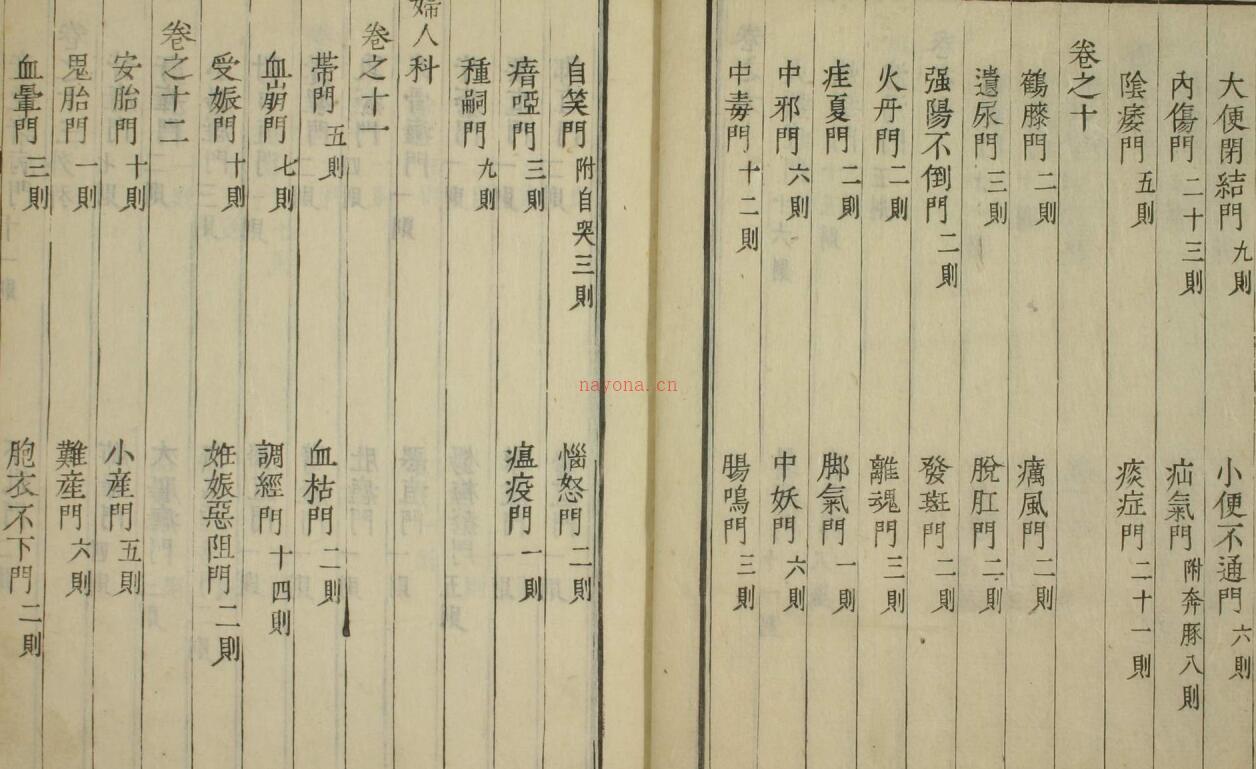 大便閉結門 九則 小便不通門 六則
內傷門 二十三則 疝氣門 附奔豚八則
陰痿門 五則 痰症門 二十一則
卷之十
鶴膝門 二則 癘風門 二則
遺尿門 三則 脫肛門 二則
强陽不倒門 二則 發斑門 二則
火丹門 二則 離魂門 三則
疰夏門 二則 脚氣門 一則
中邪門 六則 中妖門 六則
中毒門 十二則 腸鳴門 三則
自笑門 附自哭三則 惱怒門 二則
瘖啞門 三則 瘟疫門 一則
種嗣門 九則
婦人科
卷之十一
帶門 五則 血枯門 二則
血崩門 七則 調經門 十四則
受娠門 十則 姙娠惡阻門 二則
卷之十二
安胎門 十則 小產門 五則
鬼胎門 一則 難產門 六則
血暈門 三則 胞衣不下門 二則
nayona.cn